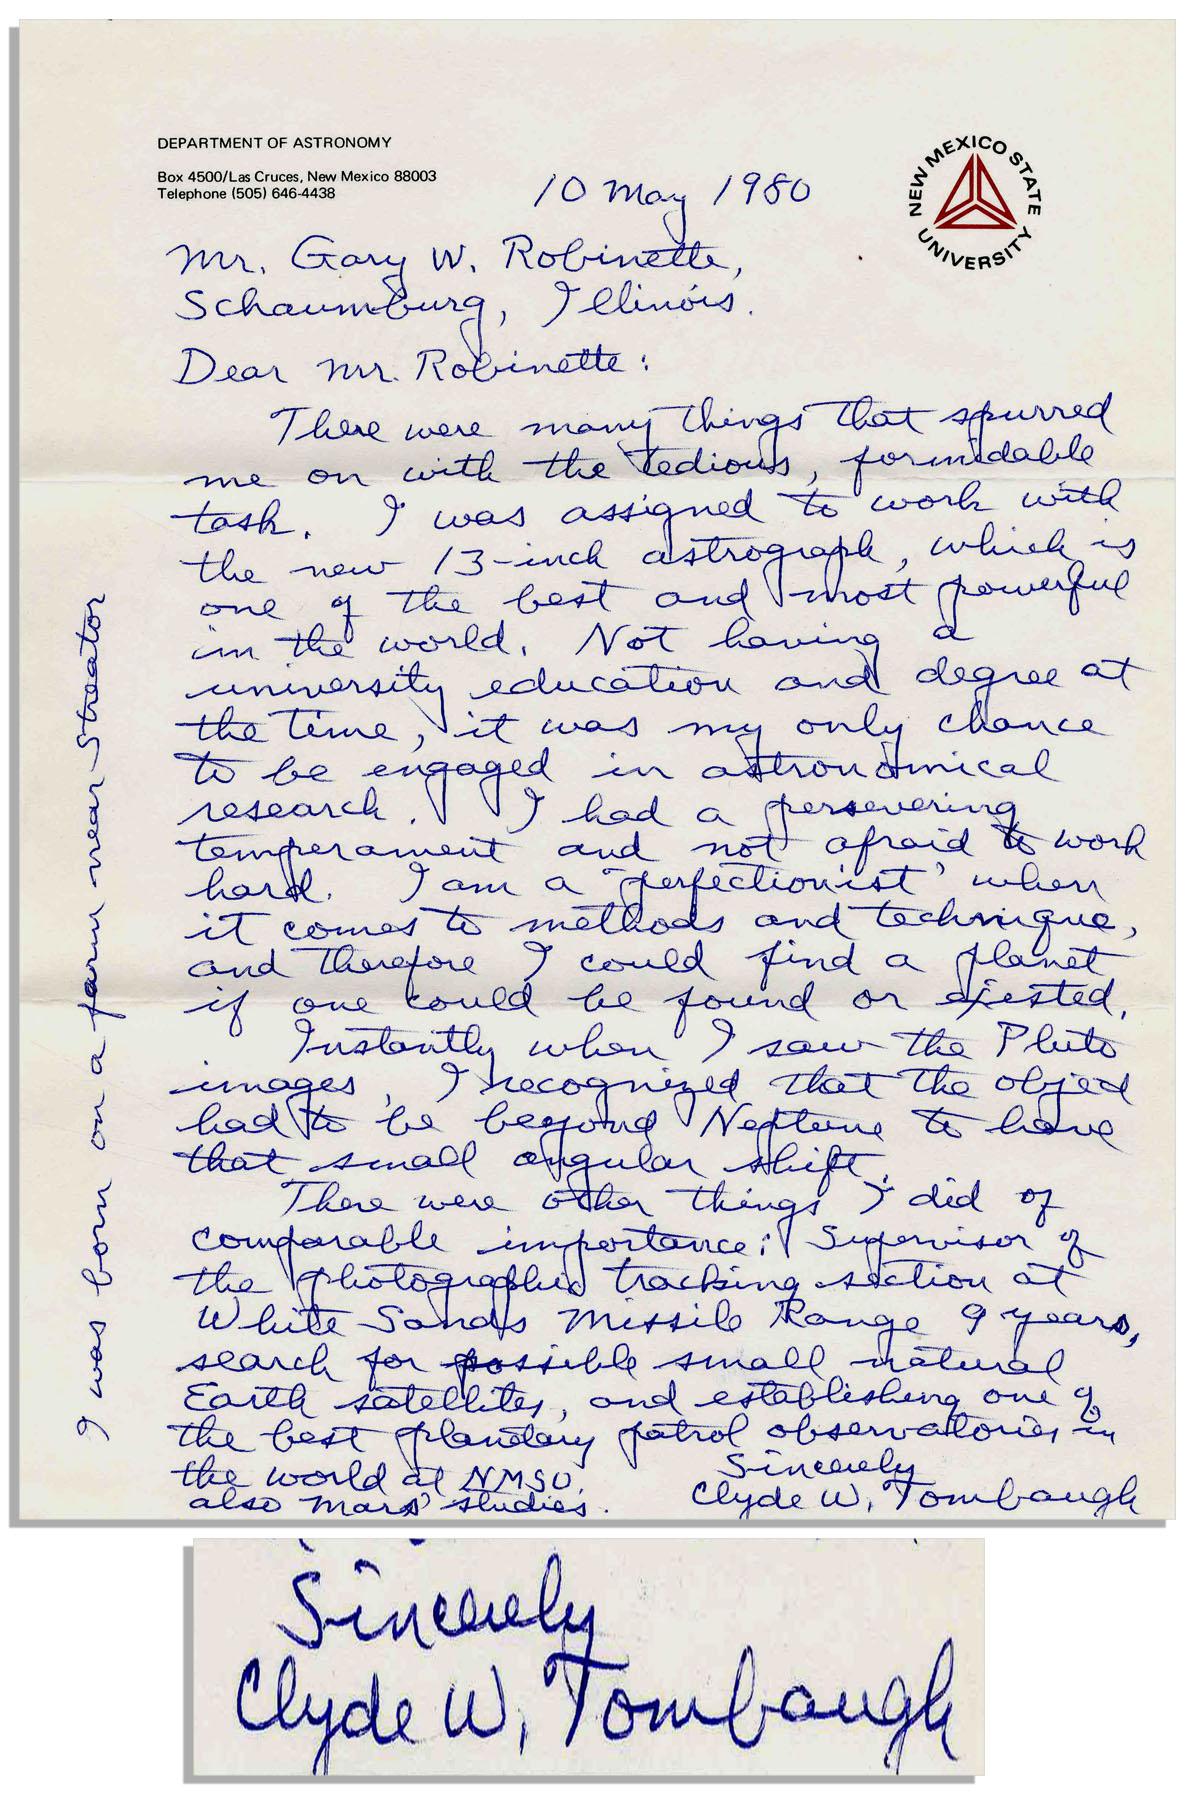 DEPARTMENT OF ASTRONOMY
Box 4500/Las Cruces, New Mexico 88003
Telephone (505) 646-4438
NEW MEXICO STATE UNIVERSITY
10 May 1980
Mr. Gary W. Robinette,
Schaumburg, Illinois.
Dear Mr. Robinette:
There were many things that spurred
me on with the tedious, formidable
task. I was assigned to work with
the new 13-inch astrograph, which is
one of the best and most powerful
in the world. Not having a
university education and degree at
the time, it was my only chance
to be engaged in astronomical
research. I had a persevering
temperament and not afraid to work
hard. I am a "perfectionist" when
it comes to methods and technique,
and therefore I could find a planet
if one could be found or existed.
Instantly when I saw the Pluto
images, I recognized that the object
had to be beyond Neptune to have
that small angular shift.
There were other things I did of
comparable importance: Supervisor of
the photographic tracking section at
White Sands Missile Range 9 years,
search for possible small natural
Earth satellites, and establishing one of
the best planetary patrol observatories in
the world at NMSU.
also Mars' studies.
Sincerely
Clyde W. Tombaugh
I was born on a farm near Streator
Sincerely
Clyde W. Tombaugh